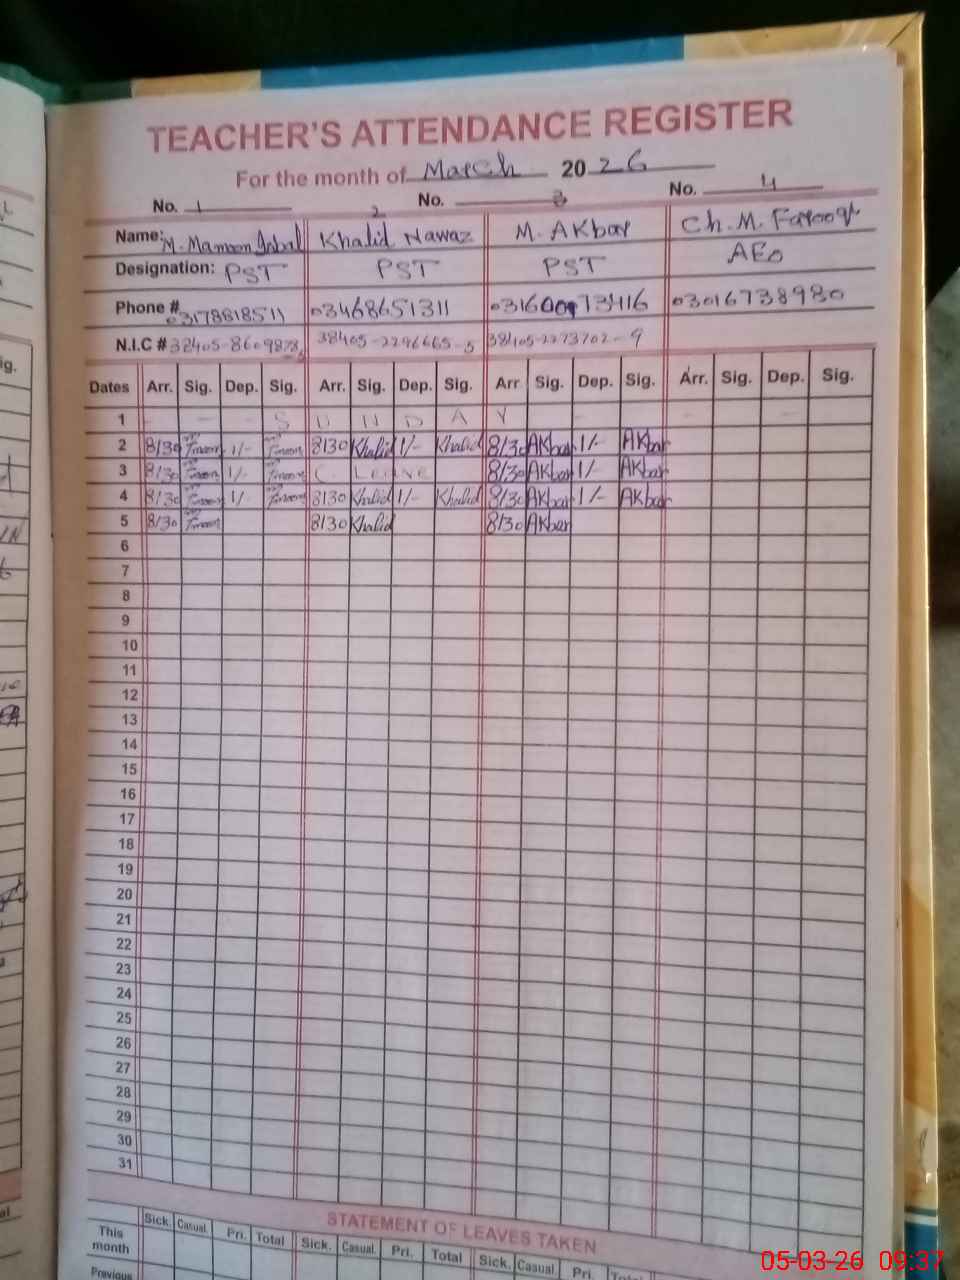 TEACHER'S ATTENDANCE REGISTER
For the month of March 2026
No. 1 2 No. 3 No. 4
Name: M. Mamoon Iqbal Khalid Nawaz M. AKbar Ch. M. Farooq
Designation: PST PST PST AEO
Phone # 03178818511 03468651311 0316 73416 03016738980
N.I.C # 38405-8609878 38405-2296665-5 38405-2273702-9
Dates Arr. Sig. Dep. Sig. Arr. Sig. Dep. Sig. Arr Sig. Dep. Sig. Arr. Sig. Dep. Sig.
1 - - S U N D A Y - - -
2 8/30 1/- 8130 Khalid 1/- Khalid 8/30 AKbar 1/- AKbar
3 8/30 1/- C. Leave 8/30 AKbar 1/- AKbar
4 8/30 1/- 8130 Khalid 1/- Khalid 8/30 AKbar 1/- AKbar
5 8/30 8130 Khalid 8/30 AKbar
6
7
8
9
10
11
12
13
14
15
16
17
18
19
20
21
22
23
24
25
26
27
28
29
30
31
STATEMENT OF LEAVES TAKEN
Sick. Casual. Pri. Total Sick. Casual. Pri. Total Sick. Casual. Pri. Total
This month
Previous
05-03-26 09:37